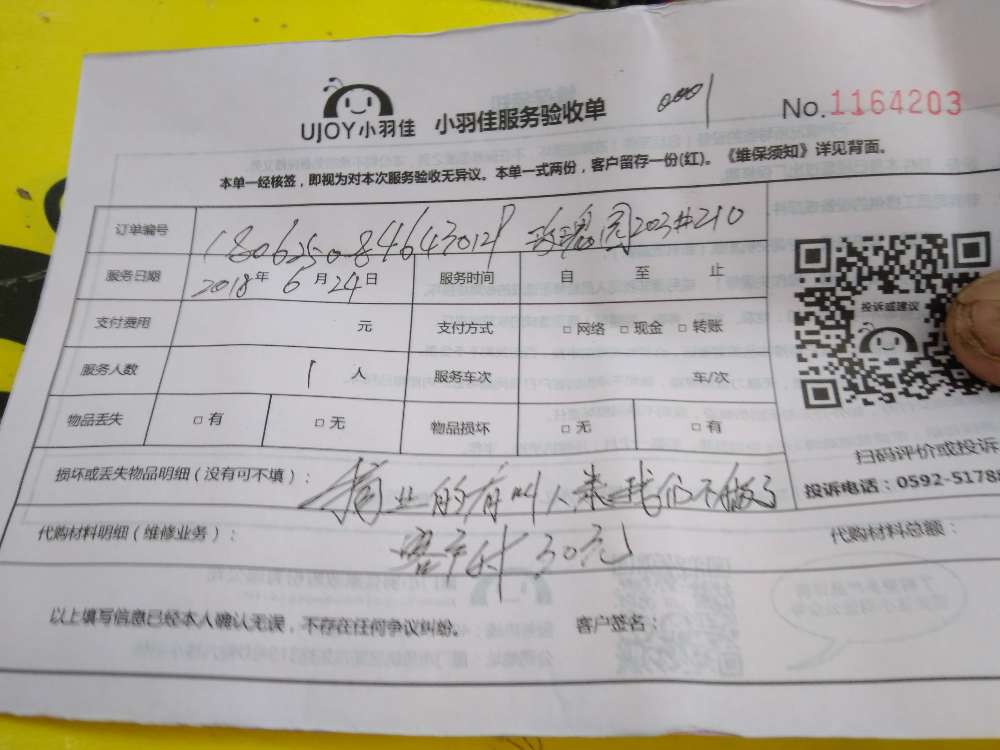 UJOY小羽佳 小羽佳服务验收单 0001 No.1164203
本单一经核签，即视为对本次服务验收无异议。本单一式两份，客户留存一份(红)。《维保须知》详见背面。
订单编号 玫瑰园203#210
服务日期 2018年6月24日 服务时间 自 至 止
支付费用 元 支付方式 □网络 □现金 □转账
投诉或建议
服务人数 1人 服务车次 车/次
物品丢失 □有 □无 物品损坏 □无 □有
扫码评价或投诉
损坏或丢失物品明细（没有可不填）： 商业的有叫人来我们不做了
投诉电话：0592-5178
代购材料明细（维修业务）： 客户付30元 代购材料总额：
以上填写信息已经本人确认无误，不存在任何争议纠纷。 客户签名：